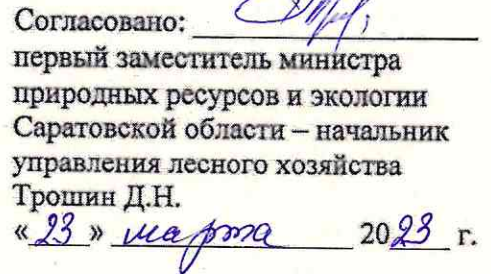 Согласовано:
первый заместитель министра
природных ресурсов и экологии
Саратовской области – начальник
управления лесного хозяйства
Трошин Д.Н.
«23» марта 2023 г.